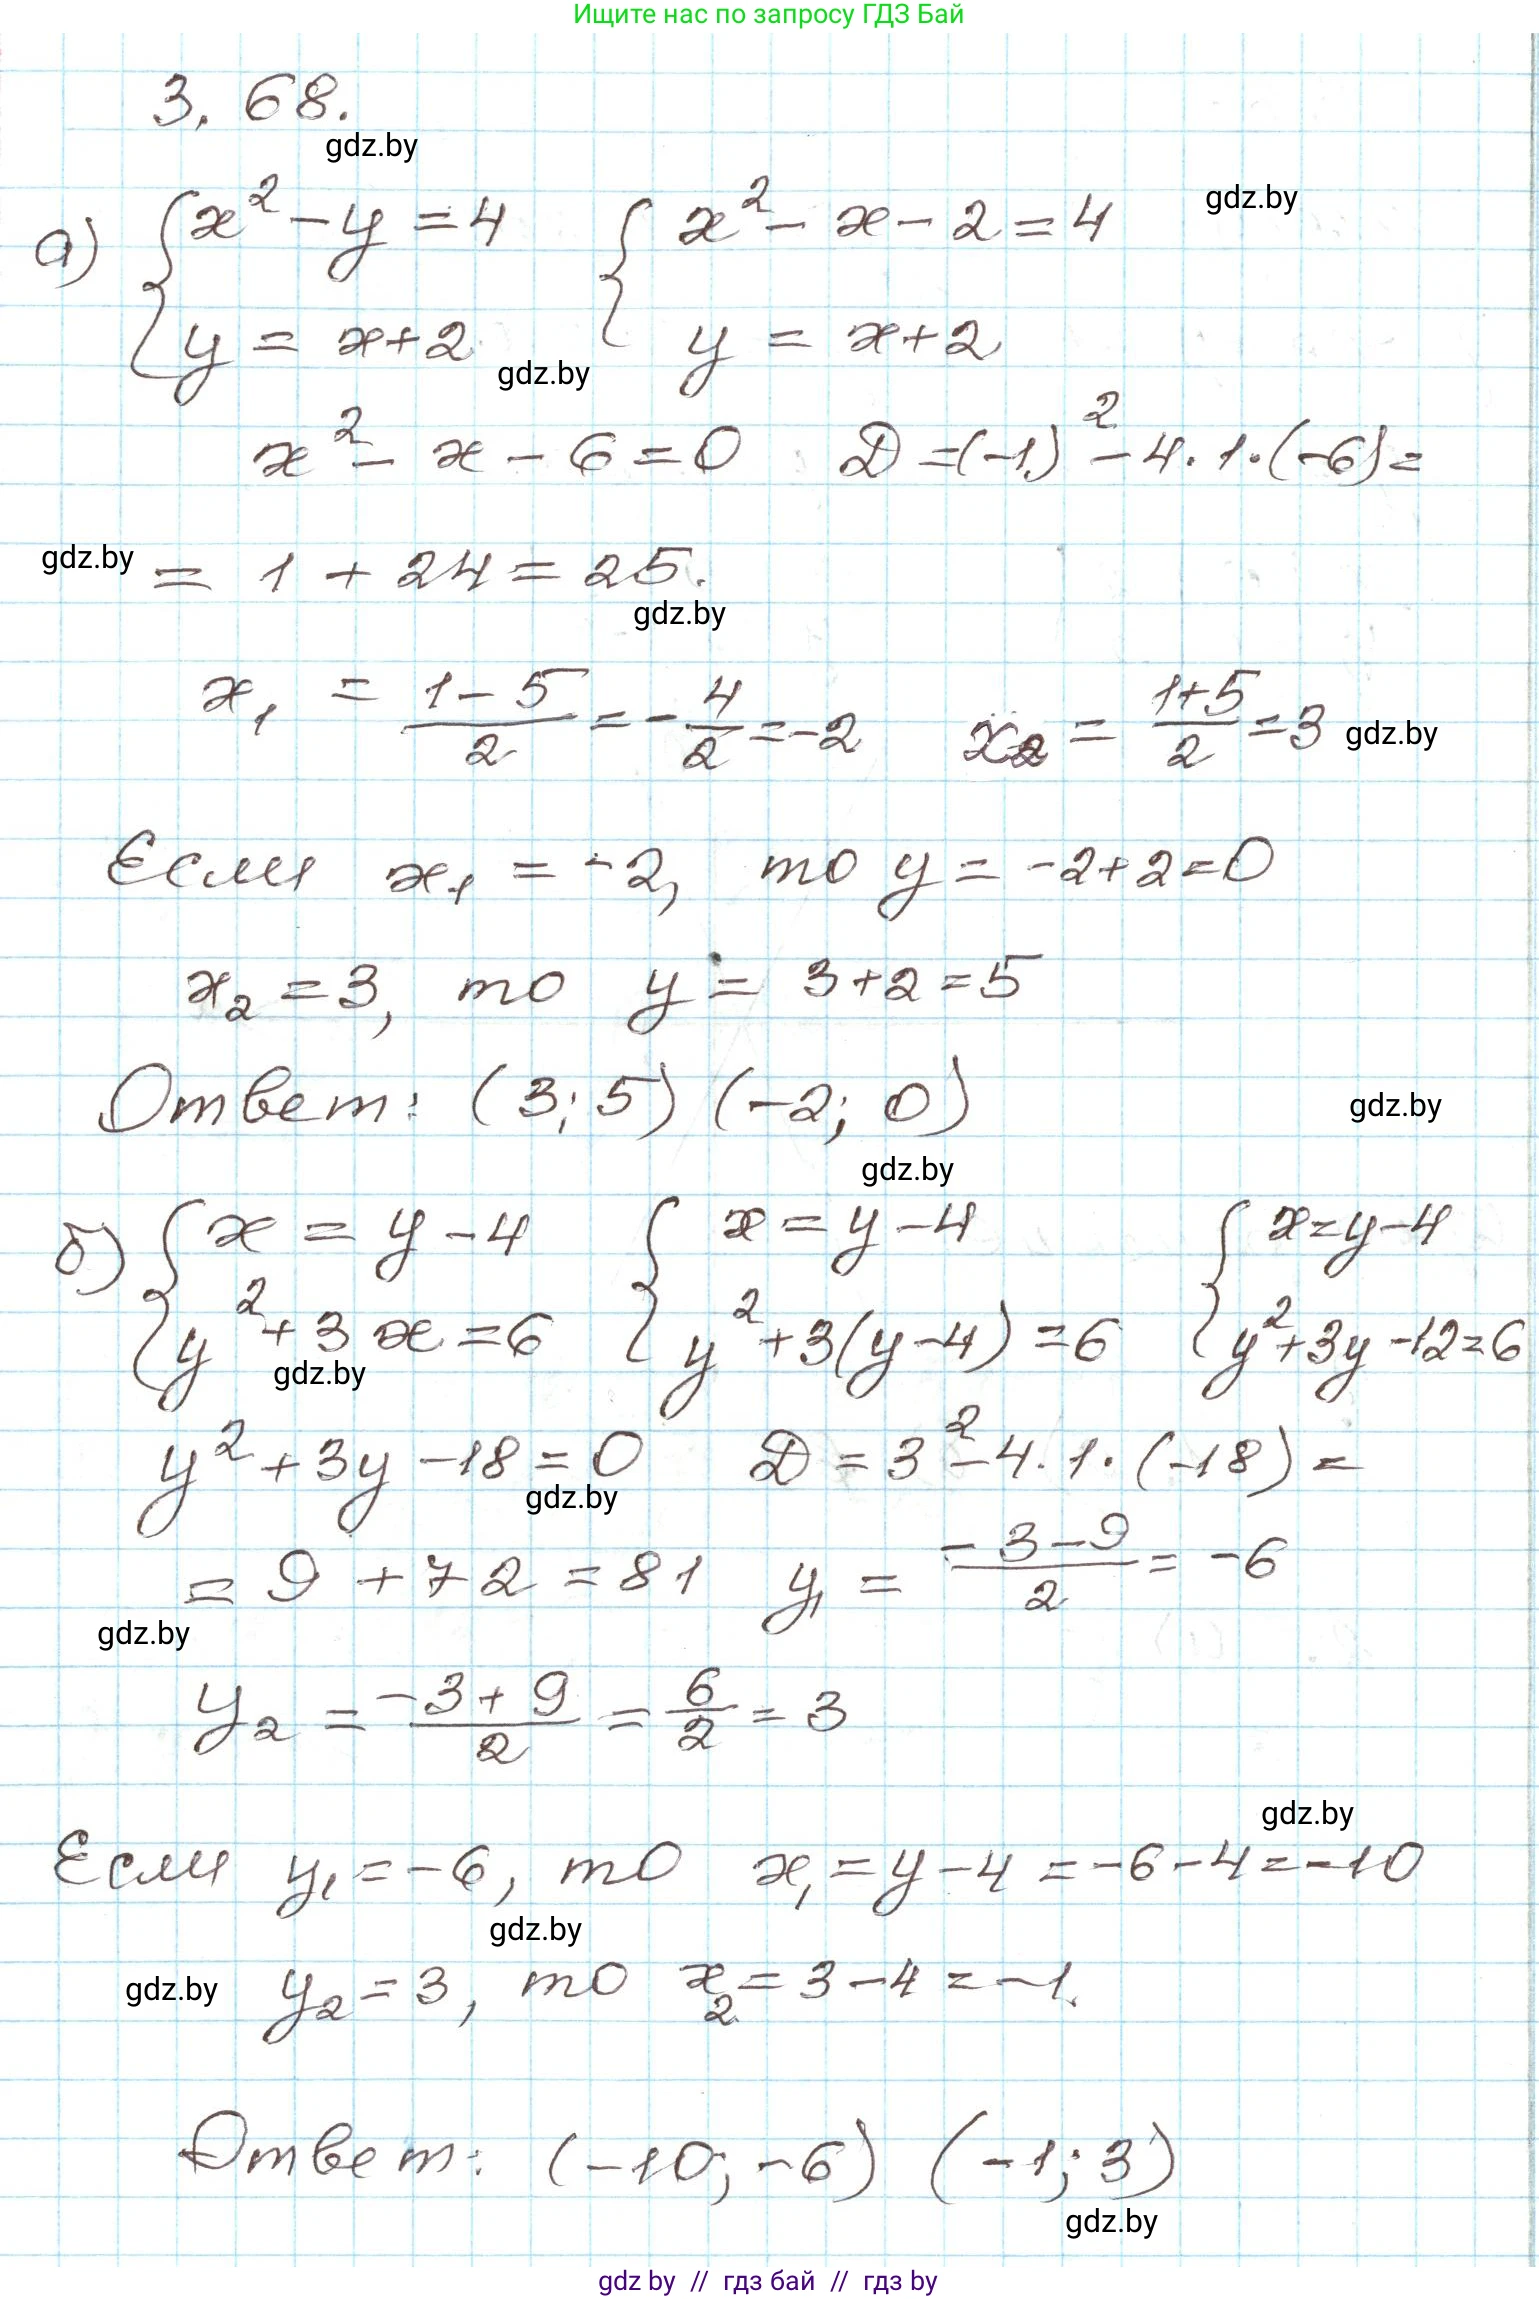 Ищите нас по запросу ГДЗ Бай
3.68.
gdz.by
а) { x² - y = 4 { x² - x - 2 = 4 gdz.by
y = x+2 y = x+2
gdz.by
x² - x - 6 = 0 D = (-1)² - 4·1·(-6) =
gdz.by = 1 + 24 = 25.
gdz.by
x₁ = (1-5)/2 = -4/2 = -2 x₂ = (1+5)/2 = 3 gdz.by
Если x₁ = -2, то y = -2+2=0
x₂ = 3, то y = 3+2=5
Ответ: (3; 5) (-2; 0) gdz.by
gdz.by
б) { x = y - 4 { x = y - 4 { x = y - 4
y² + 3x = 6 y² + 3(y-4) = 6 y² + 3y - 12 = 6
gdz.by
y² + 3y - 18 = 0 D = 3² - 4·1·(-18) =
gdz.by
= 9 + 72 = 81 y₁ = (-3-9)/2 = -6
gdz.by
y₂ = (-3+9)/2 = 6/2 = 3
gdz.by
Если y₁ = -6, то x₁ = y - 4 = -6 - 4 = -10
gdz.by
gdz.by y₂ = 3, то x₂ = 3 - 4 = -1.
Ответ: (-10; -6) (-1; 3)
gdz.by
gdz by // гдз бай // гдз by